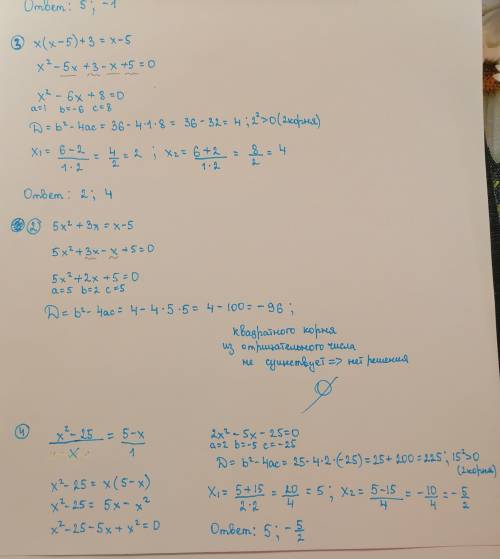 Ответ: 5 ; -1
③ x(x-5)+3 = x-5
x² - 5x + 3 - x + 5 = 0
x² - 6x + 8 = 0
a=1 b=-6 c=8
D = b² - 4ac = 36 - 4·1·8 = 36 - 32 = 4 ; 2² > 0 (2 корня)
x₁ = (6-2)/(1·2) = 4/2 = 2 ; x₂ = (6+2)/(1·2) = 8/2 = 4
Ответ: 2 ; 4
② 5x² + 3x = x - 5
5x² + 3x - x + 5 = 0
5x² + 2x + 5 = 0
a=5 b=2 c=5
D = b² - 4ac = 4 - 4·5·5 = 4 - 100 = -96 ;
квадратного корня
из отрицательного числа
не существует => нет решения
∅
④ (x² - 25)/x = (5-x)/1
x² - 25 = x(5-x)
x² - 25 = 5x - x²
x² - 25 - 5x + x² = 0
2x² - 5x - 25 = 0
a=2 b=-5 c=-25
D = b² - 4ac = 25 - 4·2·(-25) = 25 + 200 = 225 ; 15² > 0
(2 корня)
x₁ = (5+15)/(2·2) = 20/4 = 5 ; x₂ = (5-15)/4 = -10/4 = -5/2
Ответ: 5 ; -5/2